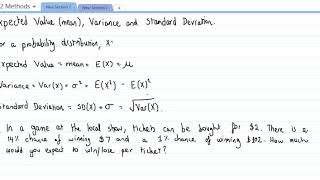 2 Methods
New Section 1
New Section 2
xpected Value (mean), Variance and Standard Deviation.
or a probability distribution, X:
xpected Value = mean = E(X) = μ
Variance = Var(X) = σ² = E(X²) - E(X)²
Standard Deviation = SD(X) = σ = √Var(X).
In a game at the local show, tickets can be bought for $2. There is a
14% chance of winning $7 and a 1% chance of winning $102. How much
would you expect to win/lose per ticket?